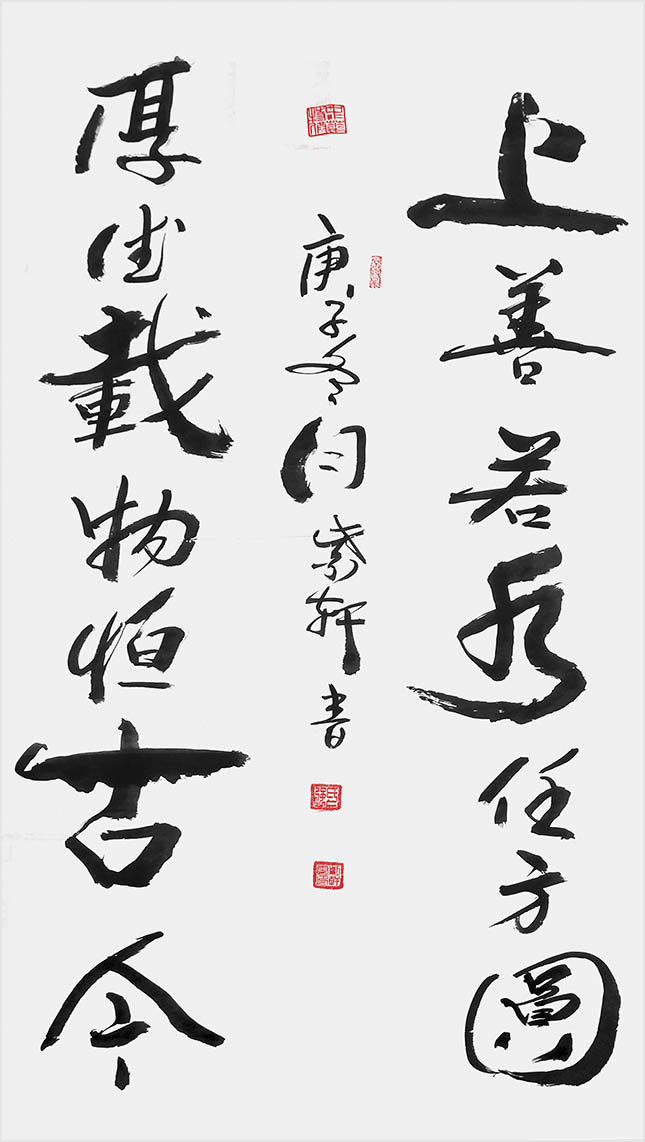 上善若水任方圓
厚德載物恒古今
庚子冬月紫軒書